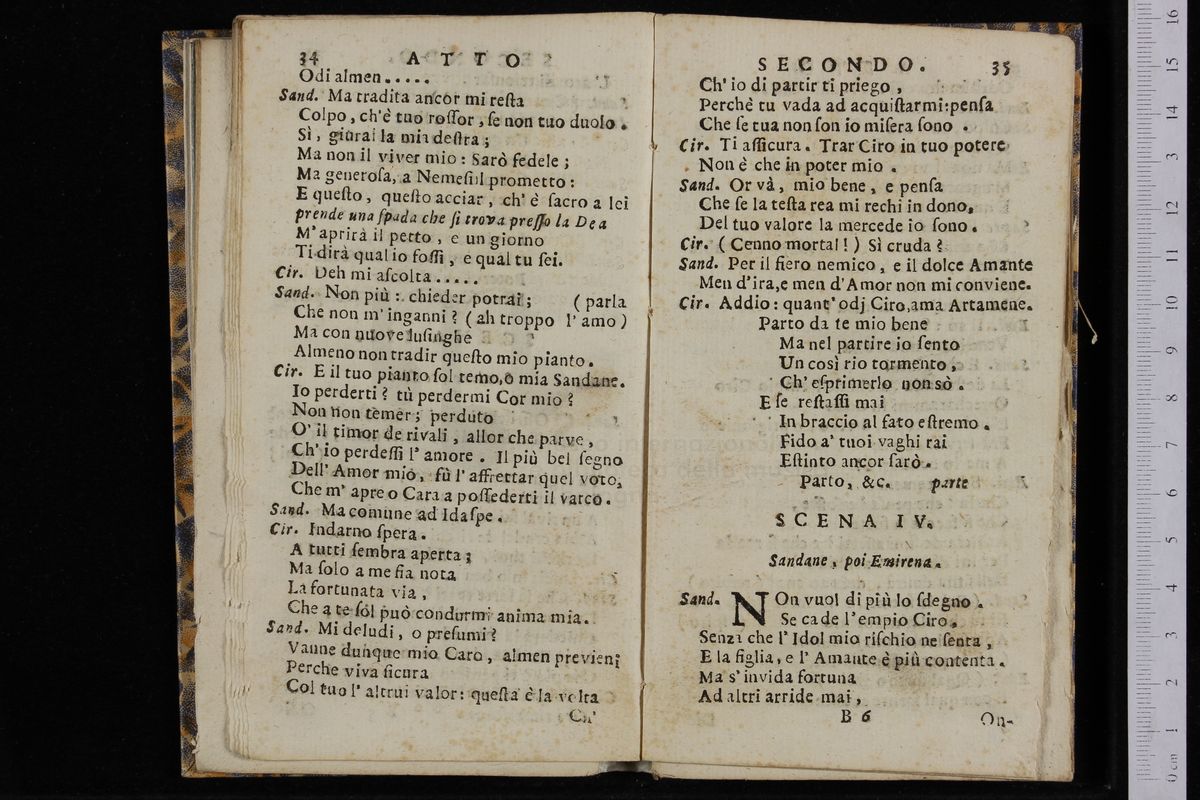 34 ATTO
Odi almen.....
Sand. Ma tradita ancor mi reſta
Colpo, ch'è tuo roſſor, ſe non tuo duolo.
Sì, giurai la mia deſtra;
Ma non il viver mio: Sarò fedele;
Ma generoſa, a Nemeſi il prometto:
E queſto, queſto acciar, ch'è ſacro a lei
prende una ſpada che ſi trova preſſo la Dea
M'aprirà il petto, e un giorno
Ti dirà qual io foſſi, e qual tu ſei.
Cir. Deh mi aſcolta.....
Sand. Non più: chieder potrai; (parla
Che non m'inganni? (ah troppo l'amo)
Ma con nuove luſinghe
Almeno non tradir queſto mio pianto.
Cir. E il tuo pianto ſol temo, ò mia Sandane.
Io perderti? tù perdermi Cor mio?
Non non temer; perduto
O' il timor de rivali, allor che parve,
Ch'io perdeſſi l'amore. Il più bel ſegno
Dell'Amor mio, fù l'affrettar quel voto,
Che m'apre o Cara a poſſederti il varco.
Sand. Ma comune ad Idaſpe.
Cir. Indarno ſpera.
A tutti ſembra aperta;
Ma ſolo a me fia nota
La fortunata via,
Che a te ſol può condurmi anima mia.
Sand. Mi deludi, o preſumi?
Vanne dunque mio Caro, almen previeni
Perche viva ſicura
Col tuo l'altrui valor: queſta è la volta
Ch'
SECONDO. 35
Ch'io di partir ti priego,
Perchè tu vada ad acquiſtarmi: penſa
Che ſe tua non ſon io miſera ſono.
Cir. Ti aſſicura. Trar Ciro in tuo potere
Non è che in poter mio.
Sand. Or và, mio bene, e penſa
Che ſe la teſta rea mi rechi in dono,
Del tuo valore la mercede io ſono.
Cir. (Cenno mortal!) Sì cruda?
Sand. Per il fiero nemico, e il dolce Amante
Men d'ira, e men d'Amor non mi conviene.
Cir. Addio: quant'odj Ciro, ama Artamene.
Parto da te mio bene
Ma nel partire io ſento
Un così rio tormento,
Ch'eſprimerlo non sò.
E ſe reſtaſſi mai
In braccio al fato eſtremo.
Fido a' tuoi vaghi rai
Eſtinto ancor ſarò.
Parto, &c. parte
SCENA IV.
Sandane, poi Emirena.
Sand. NOn vuol di più lo ſdegno.
Se cade l'empio Ciro.
Senza che l'Idol mio riſchio ne ſenta,
E la figlia, e l'Amante è più contenta.
Ma s'invida fortuna
Ad altri arride mai,
B 6 On-
0 cm 1 2 3 4 5 6 7 8 9 10 11 12 13 14 15 16